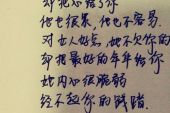 却把心给了你
他也很累,他也不容易.
对女人好点,她不欠你的
却把最好的年华给你
她内心很脆弱
经不起你的践踏.